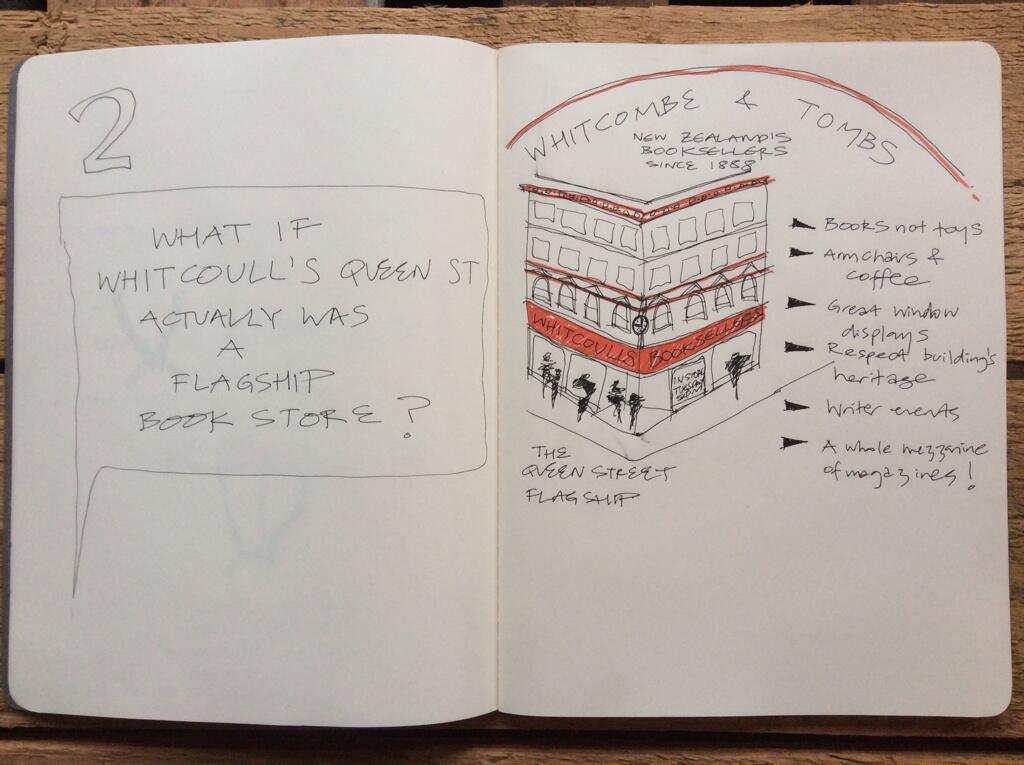 2
WHAT IF
WHITCOULL'S QUEEN ST
ACTUALLY WAS
A
FLAGSHIP
BOOK STORE?
WHITCOMBE & TOMBS
NEW ZEALAND'S
BOOKSELLERS
SINCE 1888
WHITCOULLS BOOKSELLERS
IN STORE
TUESDAY
THE
QUEEN STREET
FLAGSHIP
Books not toys
Armchairs &
coffee
Great window
displays
Respect building's
heritage
Writer events
A whole mezzanine
of magazines!